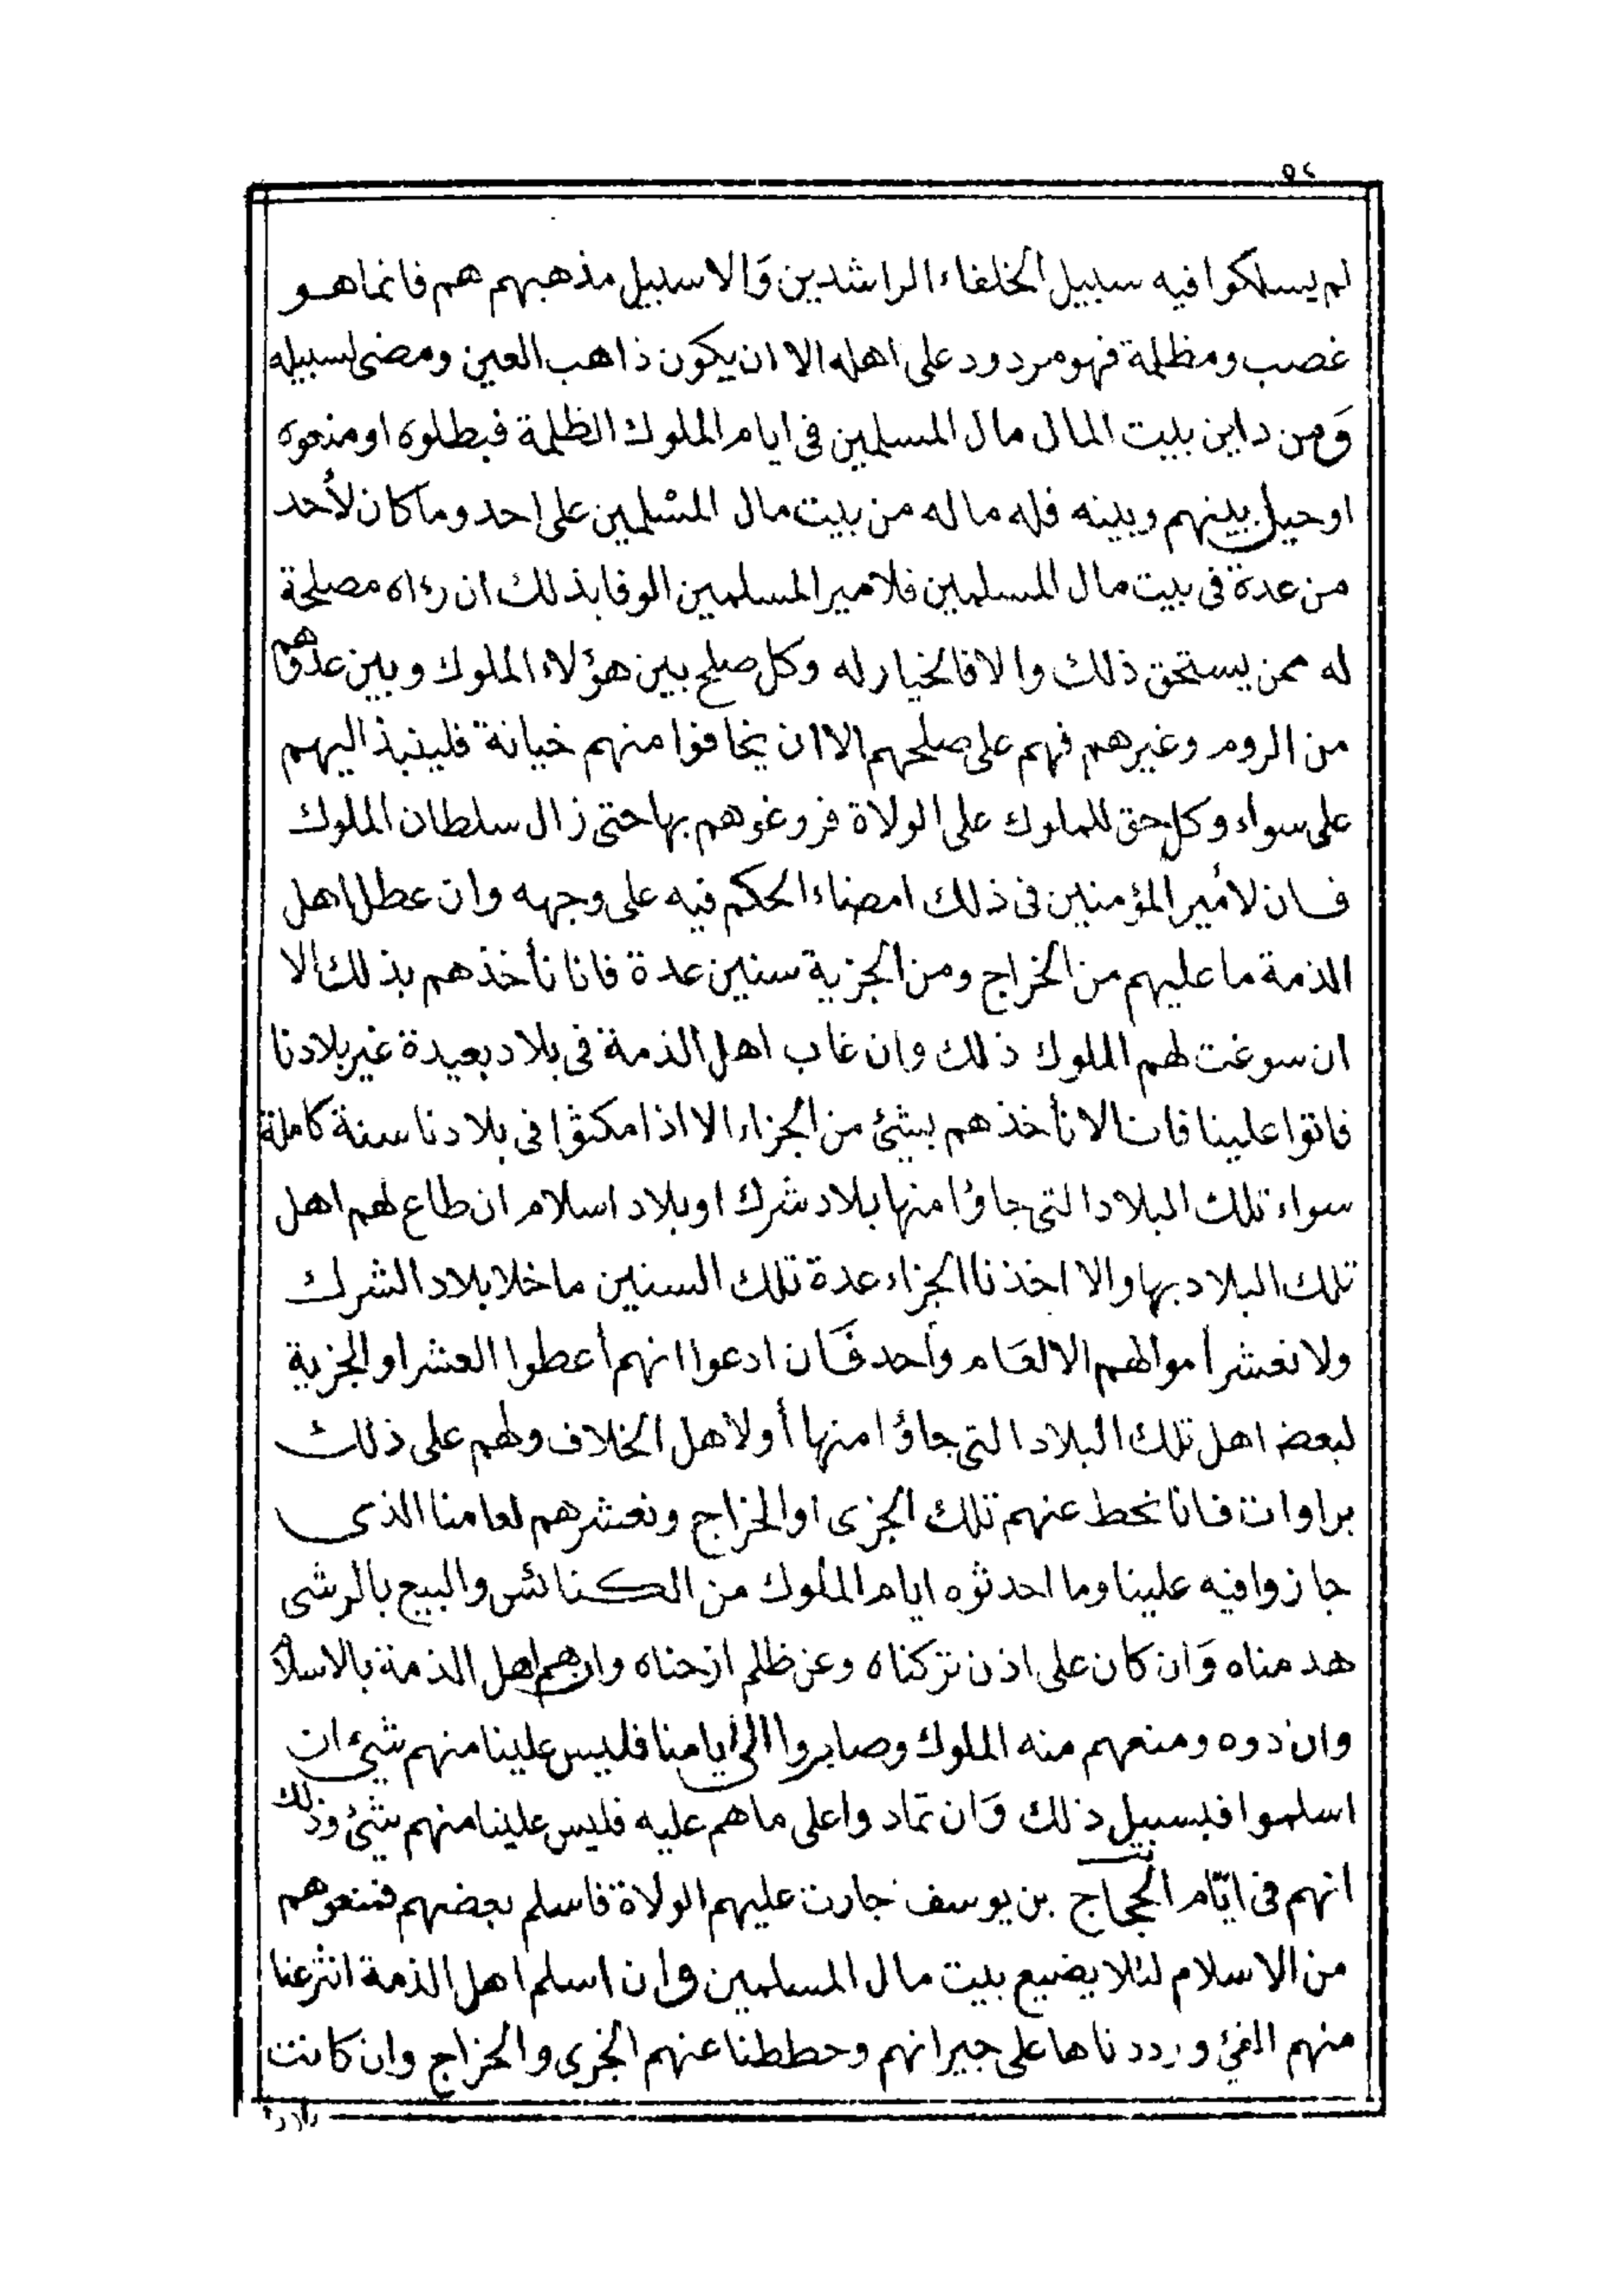 ٥٤
لم يسلكوا فيه سبيل الخلفاء الراشدين وَالا سبيل مذهبهم هم فانما هو
غصب ومظلمة فهو مردود على اهله الا ان يكون ذاهب العين ومضى لسبيله
وَمن داين بليت المال مال المسلمين فى ايام الملوك الظلمة فبطلوه او منعوه
او حيل بينهم وبينه فله ماله من بيت مال المسْلمين على احد وما كان لأحد
من عدة فى بيت مال المسلمين فلامير المسلمين الوفا بذلك ان رءاه مصلحة
له ممن يستحق ذلك والا فالخيار له وكل صلح بين هؤلاء الملوك وبين عدوهم
من الروم وغيرهم فهم على صلحهم الا ان يخافوا منهم خيانة فلينبذ اليهم
على سواء وكل حق للملوك على الولاة فروغوهم بها حتى زال سلطان الملوك
فان لأمير المؤمنين فى ذلك امضاء الحكم فيه على وجهه وان عطل اهل
الذمة ما عليهم من الخراج ومن الجزية سنين عدة فانا نأخذهم بذلك الا
ان سوغت لهم الملوك ذلك وان غاب اهل الذمة فى بلاد بعيدة غير بلادنا
فاتوا علينا فانا لا نأخذهم بشئ من الجزاء الا اذا مكثوا فى بلادنا سنة كاملة
سواء تلك البلاد التى جاؤا منها بلاد شرك او بلاد اسلام ان طاع لهم اهل
تلك البلاد بها والا اخذنا الجزاء عدة تلك السنين ما خلا بلاد الشرك
ولا نعشر أموالهم الا لعَام وأحد فَان ادعوا انهم أعطوا العشر او الجزية
لبعض اهل تلك البلاد التى جاؤا منها أو لاهل الخلاف ولهم على ذلك
براوات فانا نحط عنهم تلك الجزى او الخراج ونعشرهم لعامنا الذى
جازوا فيه علينا وما احدثوه ايام الملوك من الكنائس والبيع بالرشى
هدمناه وَان كان على اذن تركناه وعن ظلم ازحناه وان هم اهل الذمة بالاسلام
وان دوه ومنعهم منه الملوك وصابروا الى ايامنا فليس علينا منهم شيء ان
اسلموا فبسبيل ذلك وَان تماد وا على ما هم عليه فليس علينا منهم شئ وذلك
انهم فى ايّام الحجاج بن يوسف جارت عليهم الولاة فاسلم بعضهم فمنعوهم
من الاسلام لئلا يضيع بيت مال المسلمين وان اسلم اهل الذمة انتزعنا
منهم الفئ ورددناها على جيرانهم وحططنا عنهم الجزى والخراج وان كانت